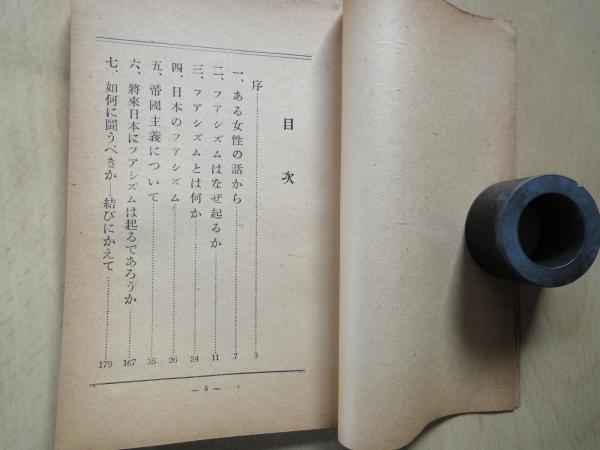 目次
序……3
一、ある女性の話から……7
二、フアシズムはなぜ起るか……11
三、フアシズムとは何か……24
四、日本のフアシズム……26
五、帝國主義について……35
六、將來日本にフアシズムは起るであろうか……167
七、如何に闘うべきか―結びにかえて……179
— 5 —